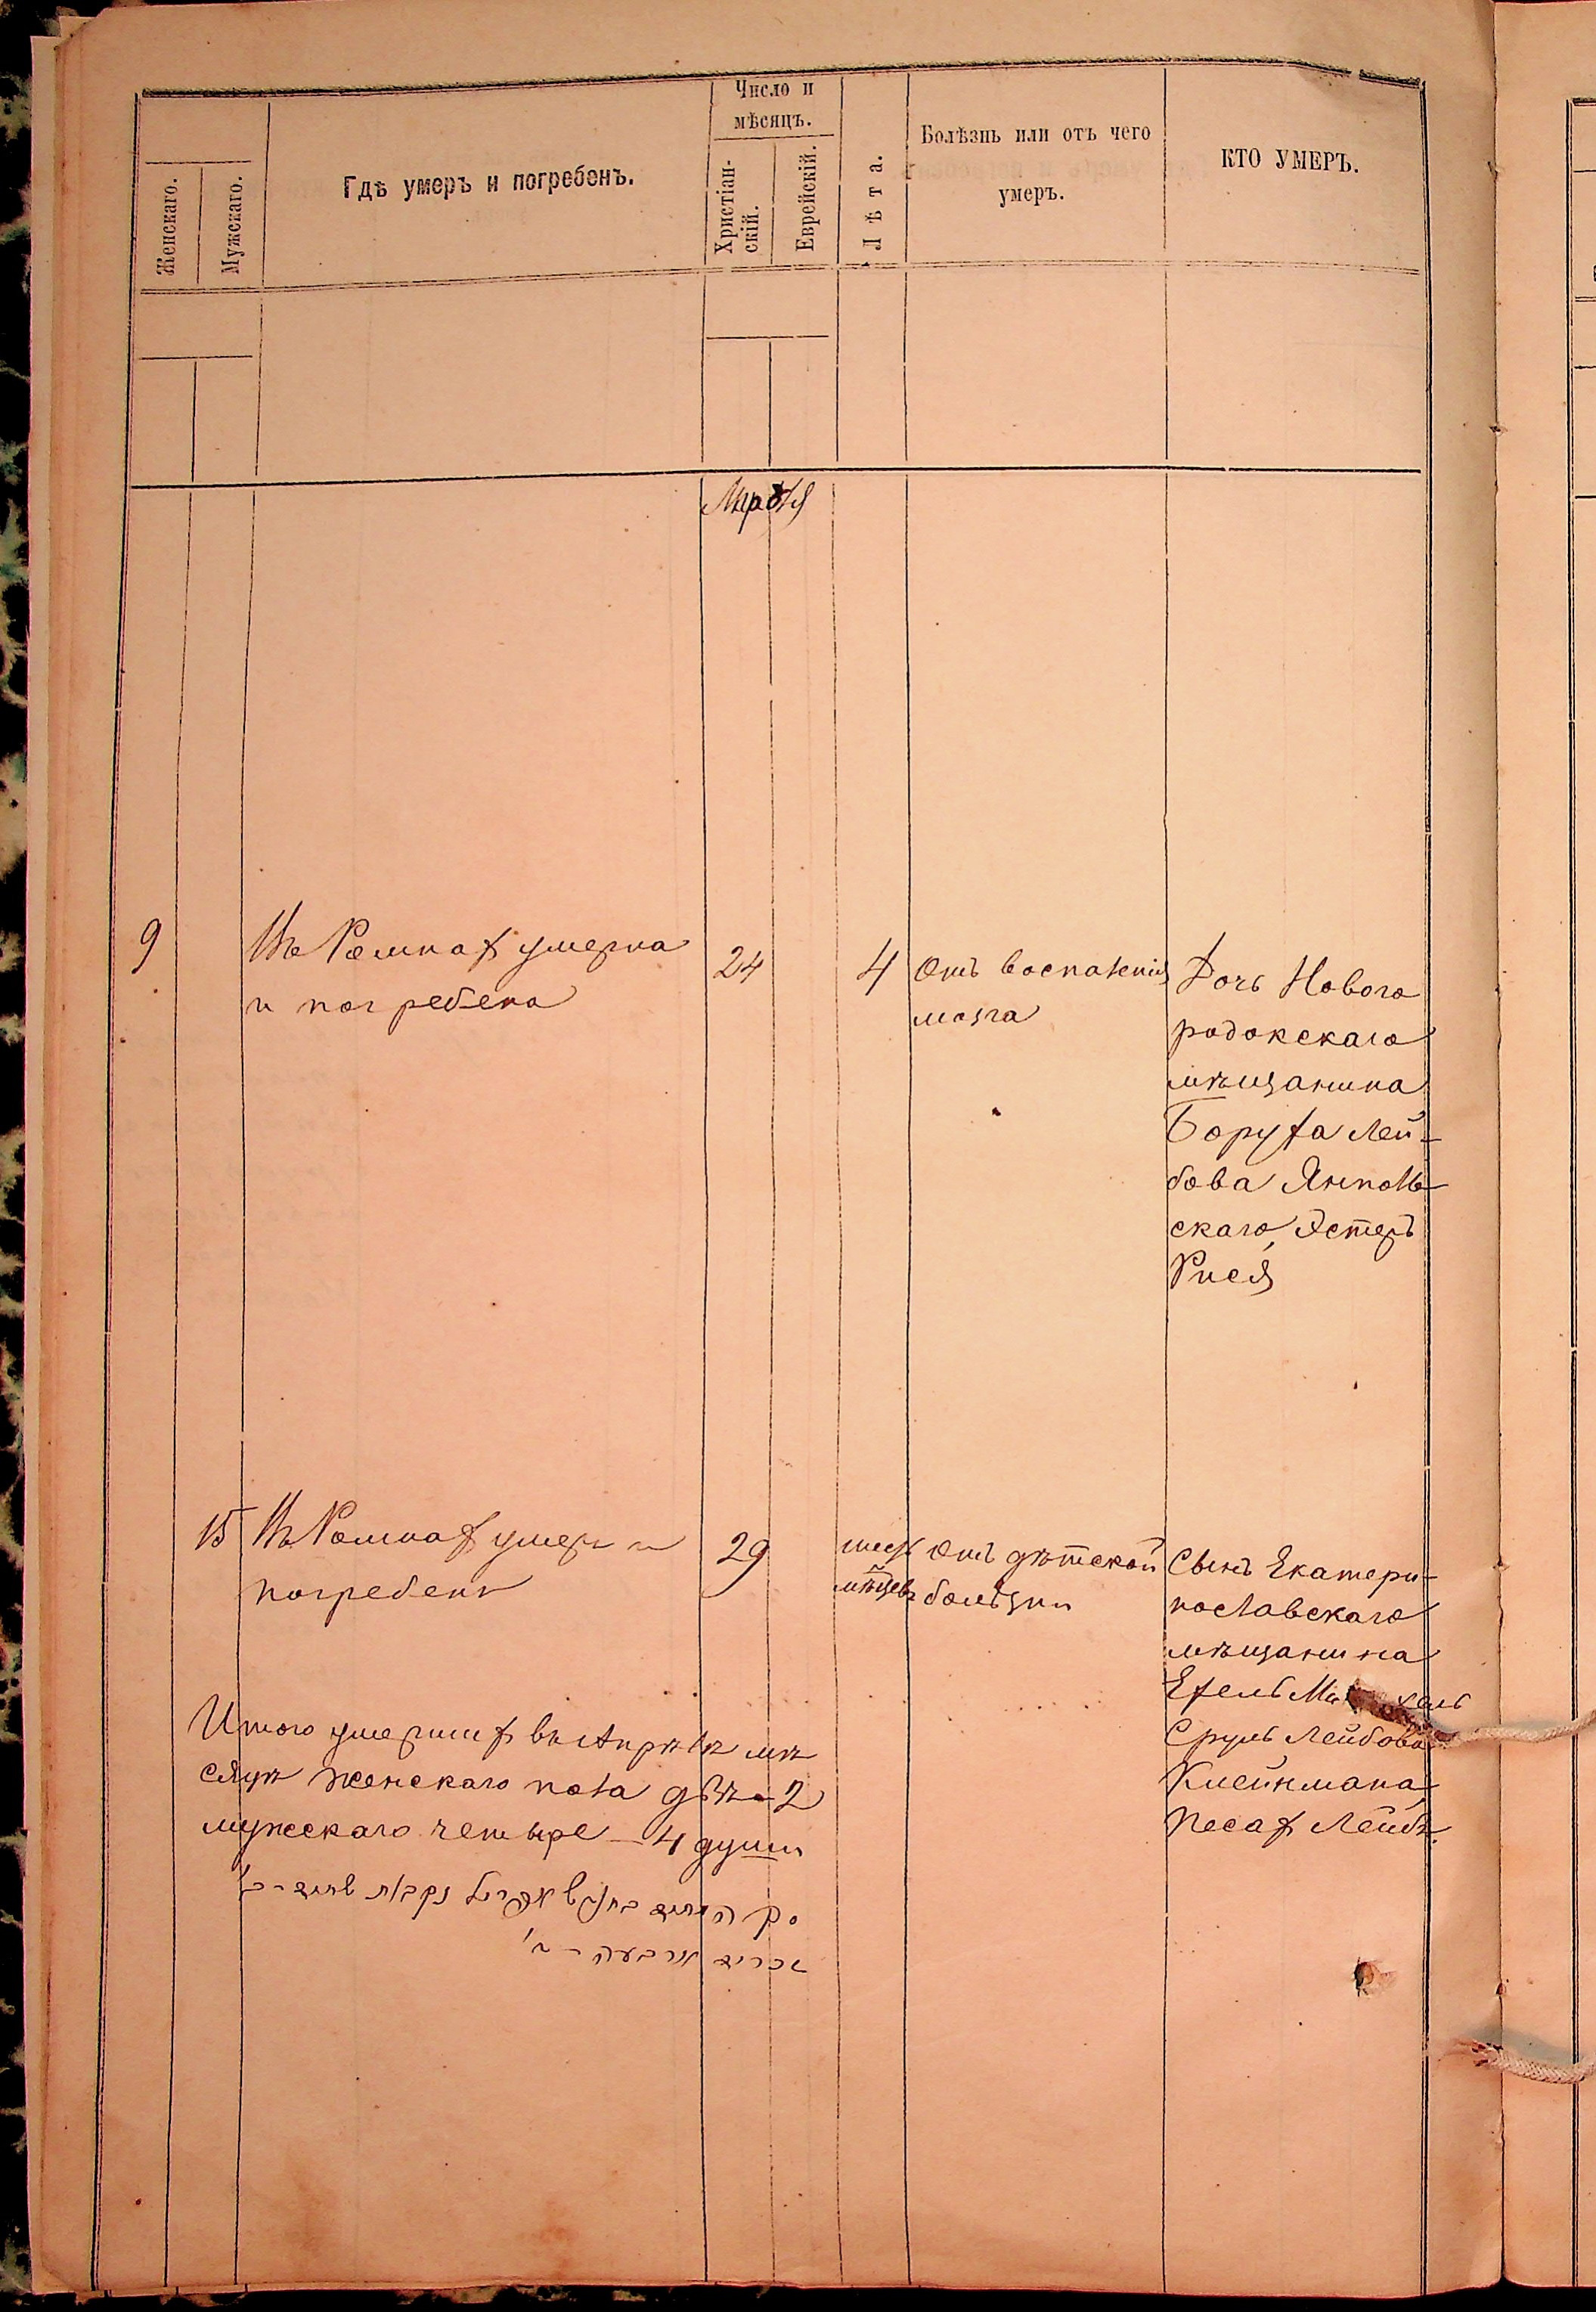 Число и
мѣсяцъ.
Женскаго.
Мужскаго.
Гдѣ умеръ и погребенъ.
Христіан-
скій.
Еврейскій.
Лѣта.
Болѣзнь или отъ чего
умеръ.
КТО УМЕРЪ.
9
Въ Ромнах умерла
и погребена
24
4
Отъ воспаленія
мозга
Дочь Новаго
родокскаго
мѣщанина
Боруха Лей-
бова Ямполь
скаго, Эстеръ
Рися
15
Въ Ромнах умеръ и
погребенъ
29
мѣсцевъ
Отъ дѣтской
болѣзни
Сынъ Екатери-
нославскаго
мѣщанина
Ехель
Сруль Лейбова
Клейнмана
Песах Лейбъ.
Итого умерших въ Апрѣлѣ мѣ
сяцѣ женскаго пола двѣ-2
мужескаго четыре - 4 души
ארבעה - ד'